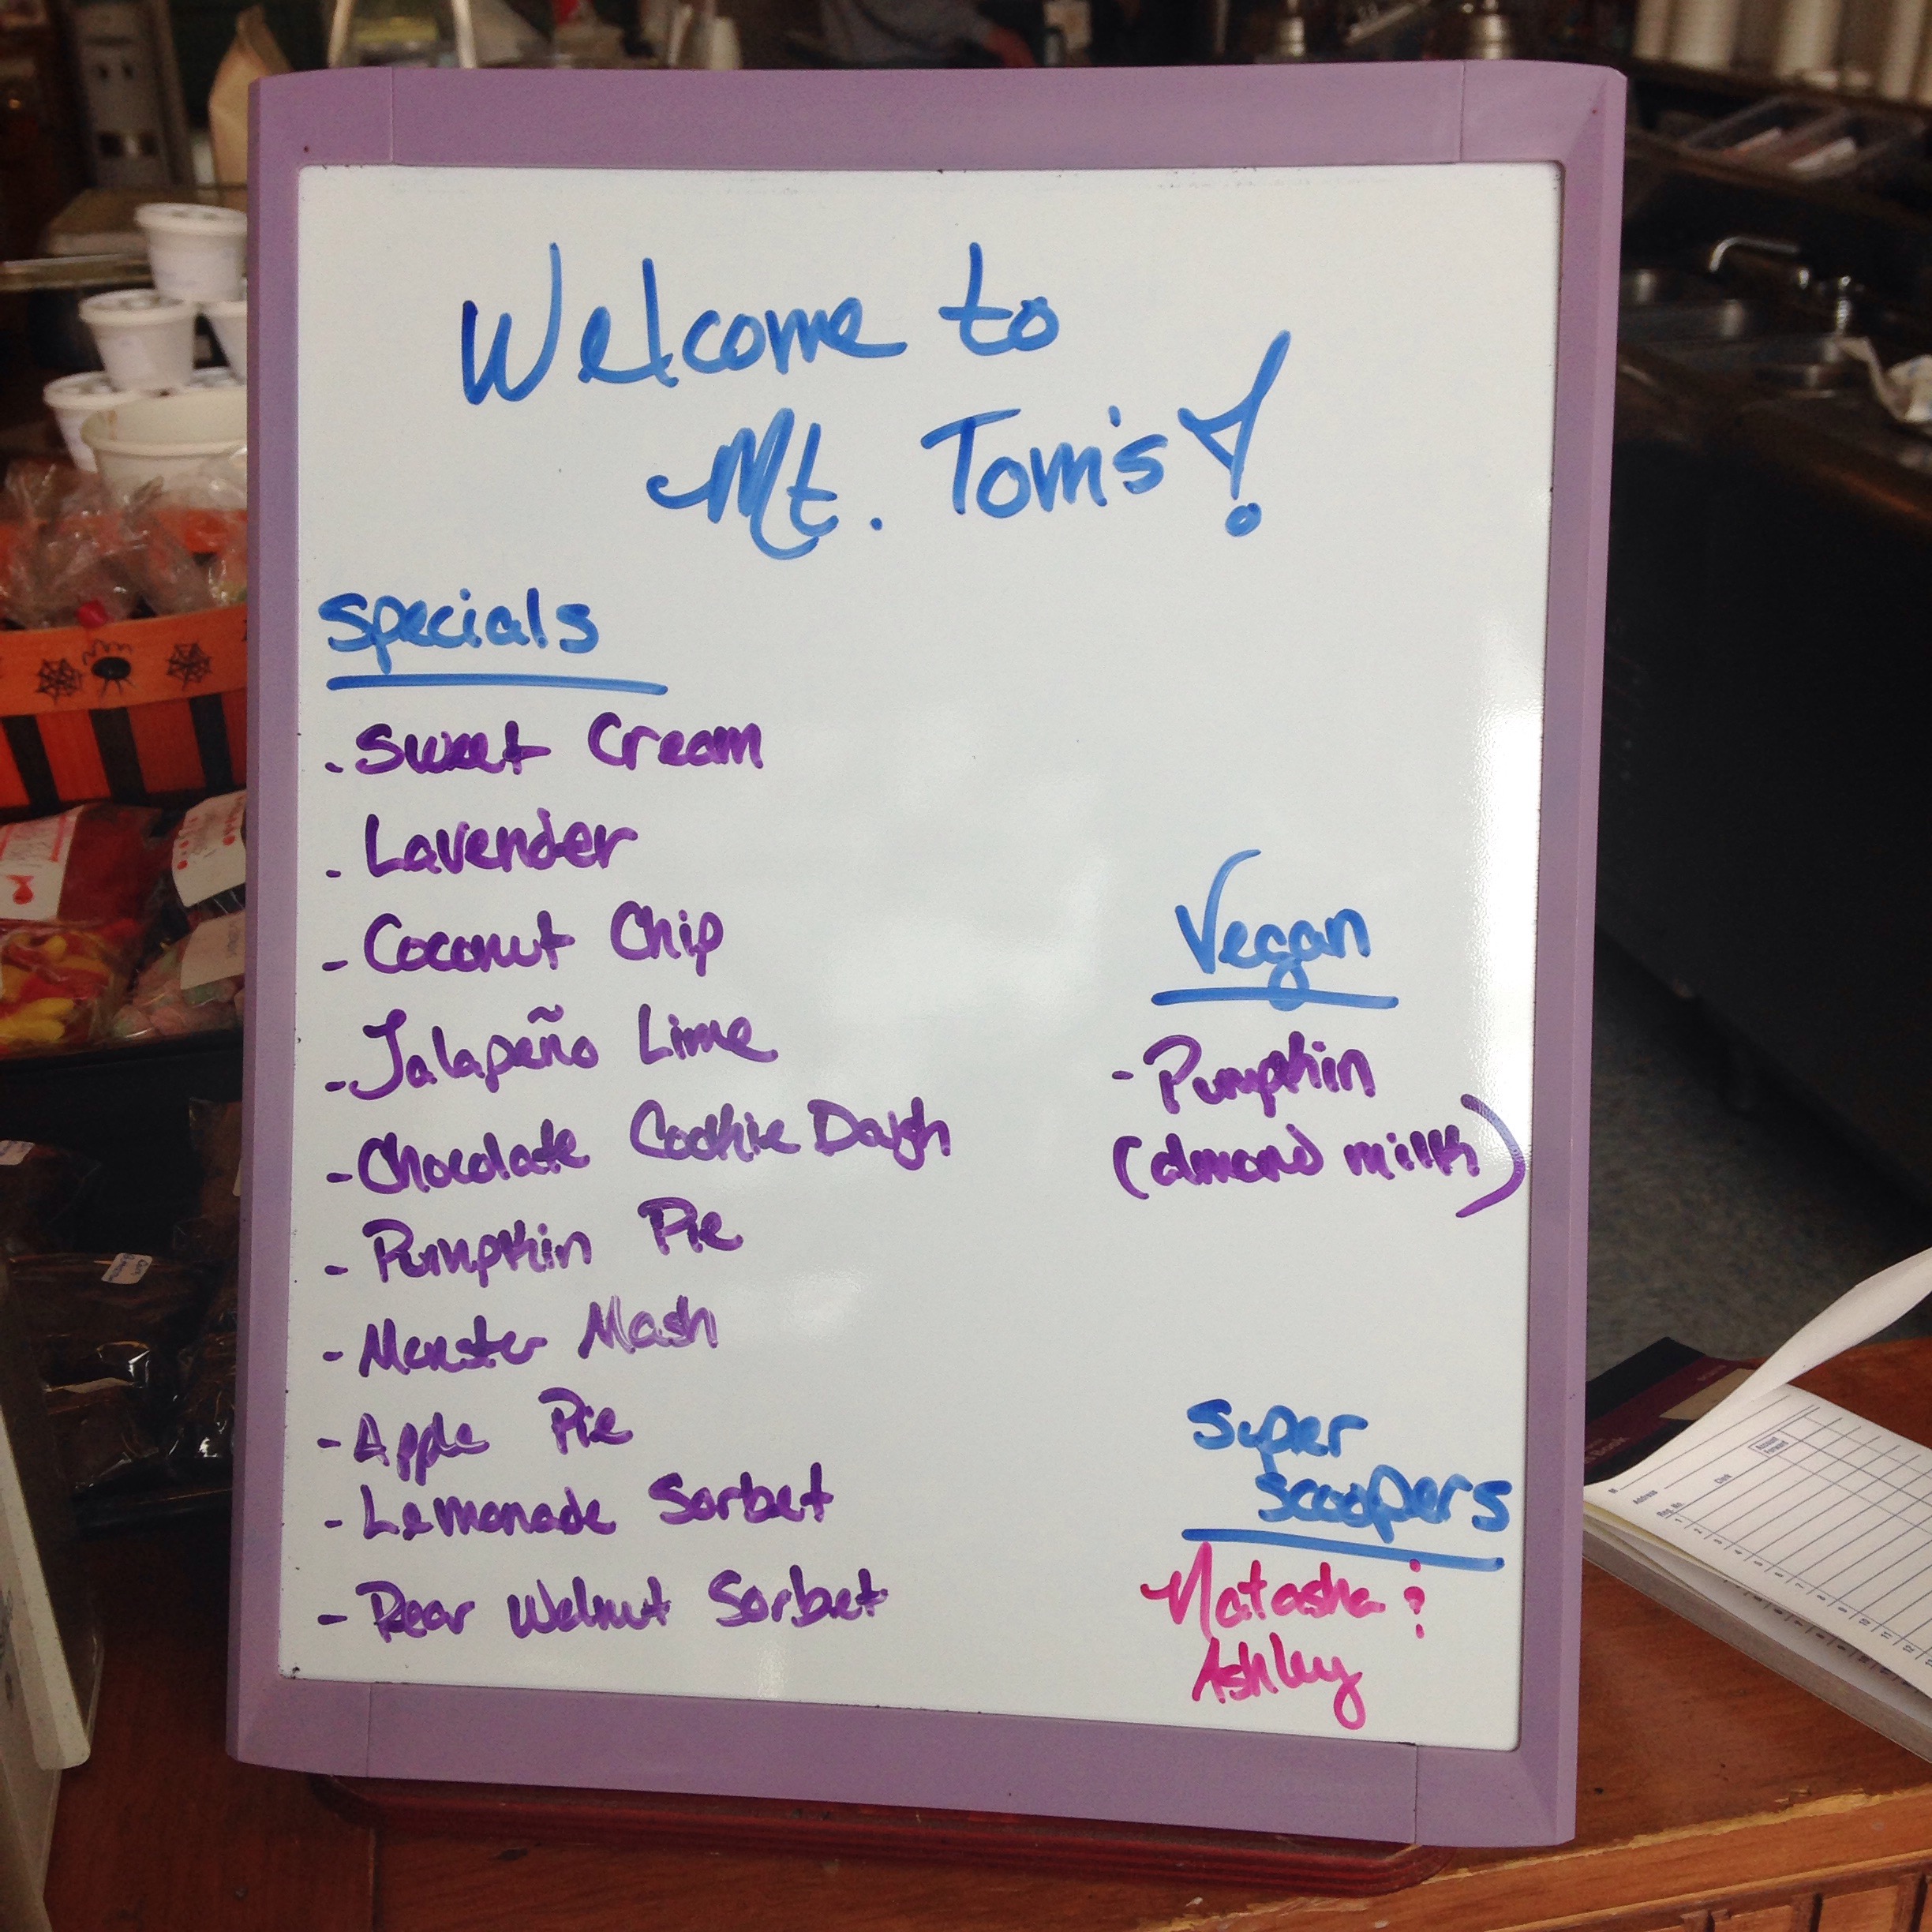 Welcome to
Mt. Tom's!
Specials
- Sweet Cream
- Lavender
- Coconut Chip
- Jalapeño Lime
- Chocolate Cookie Dough
- Pumpkin Pie
- Monster Mash
- Apple Pie
- Lemonade Sorbet
- Pear Walnut Sorbet
Vegan
- Pumpkin
(almond milk)
Super
Scoopers
Natasha &
Ashley